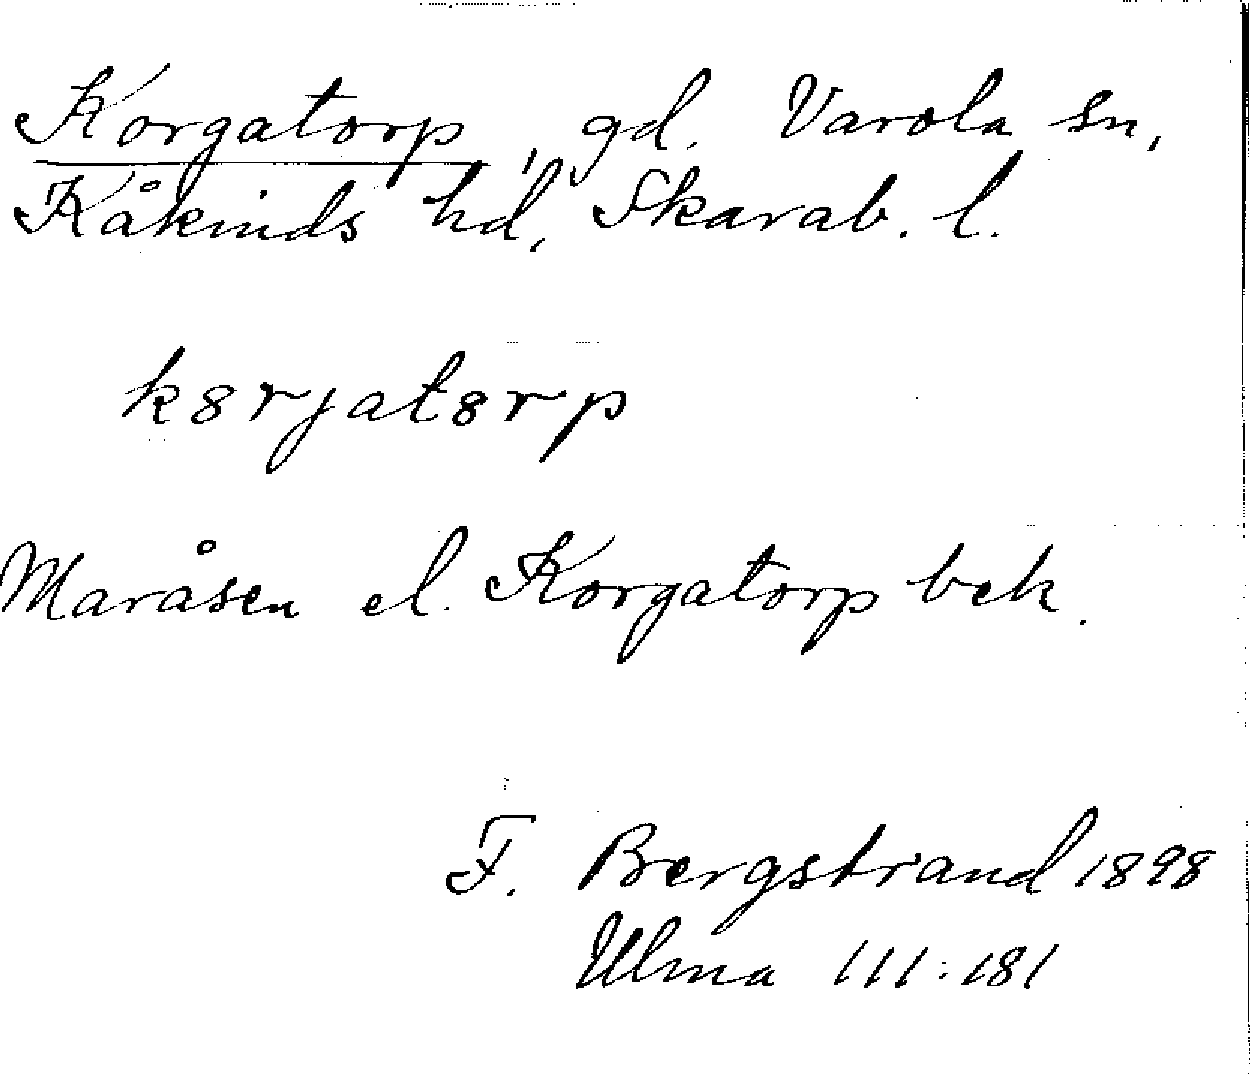 Korgatorp, gd. Varola sn,
Kåkinds hd, Skarab. l.
k8rjat8rp
Maråsen el. Korgatorp bek.
F. Bergstrand 1898
Ulma 111:181